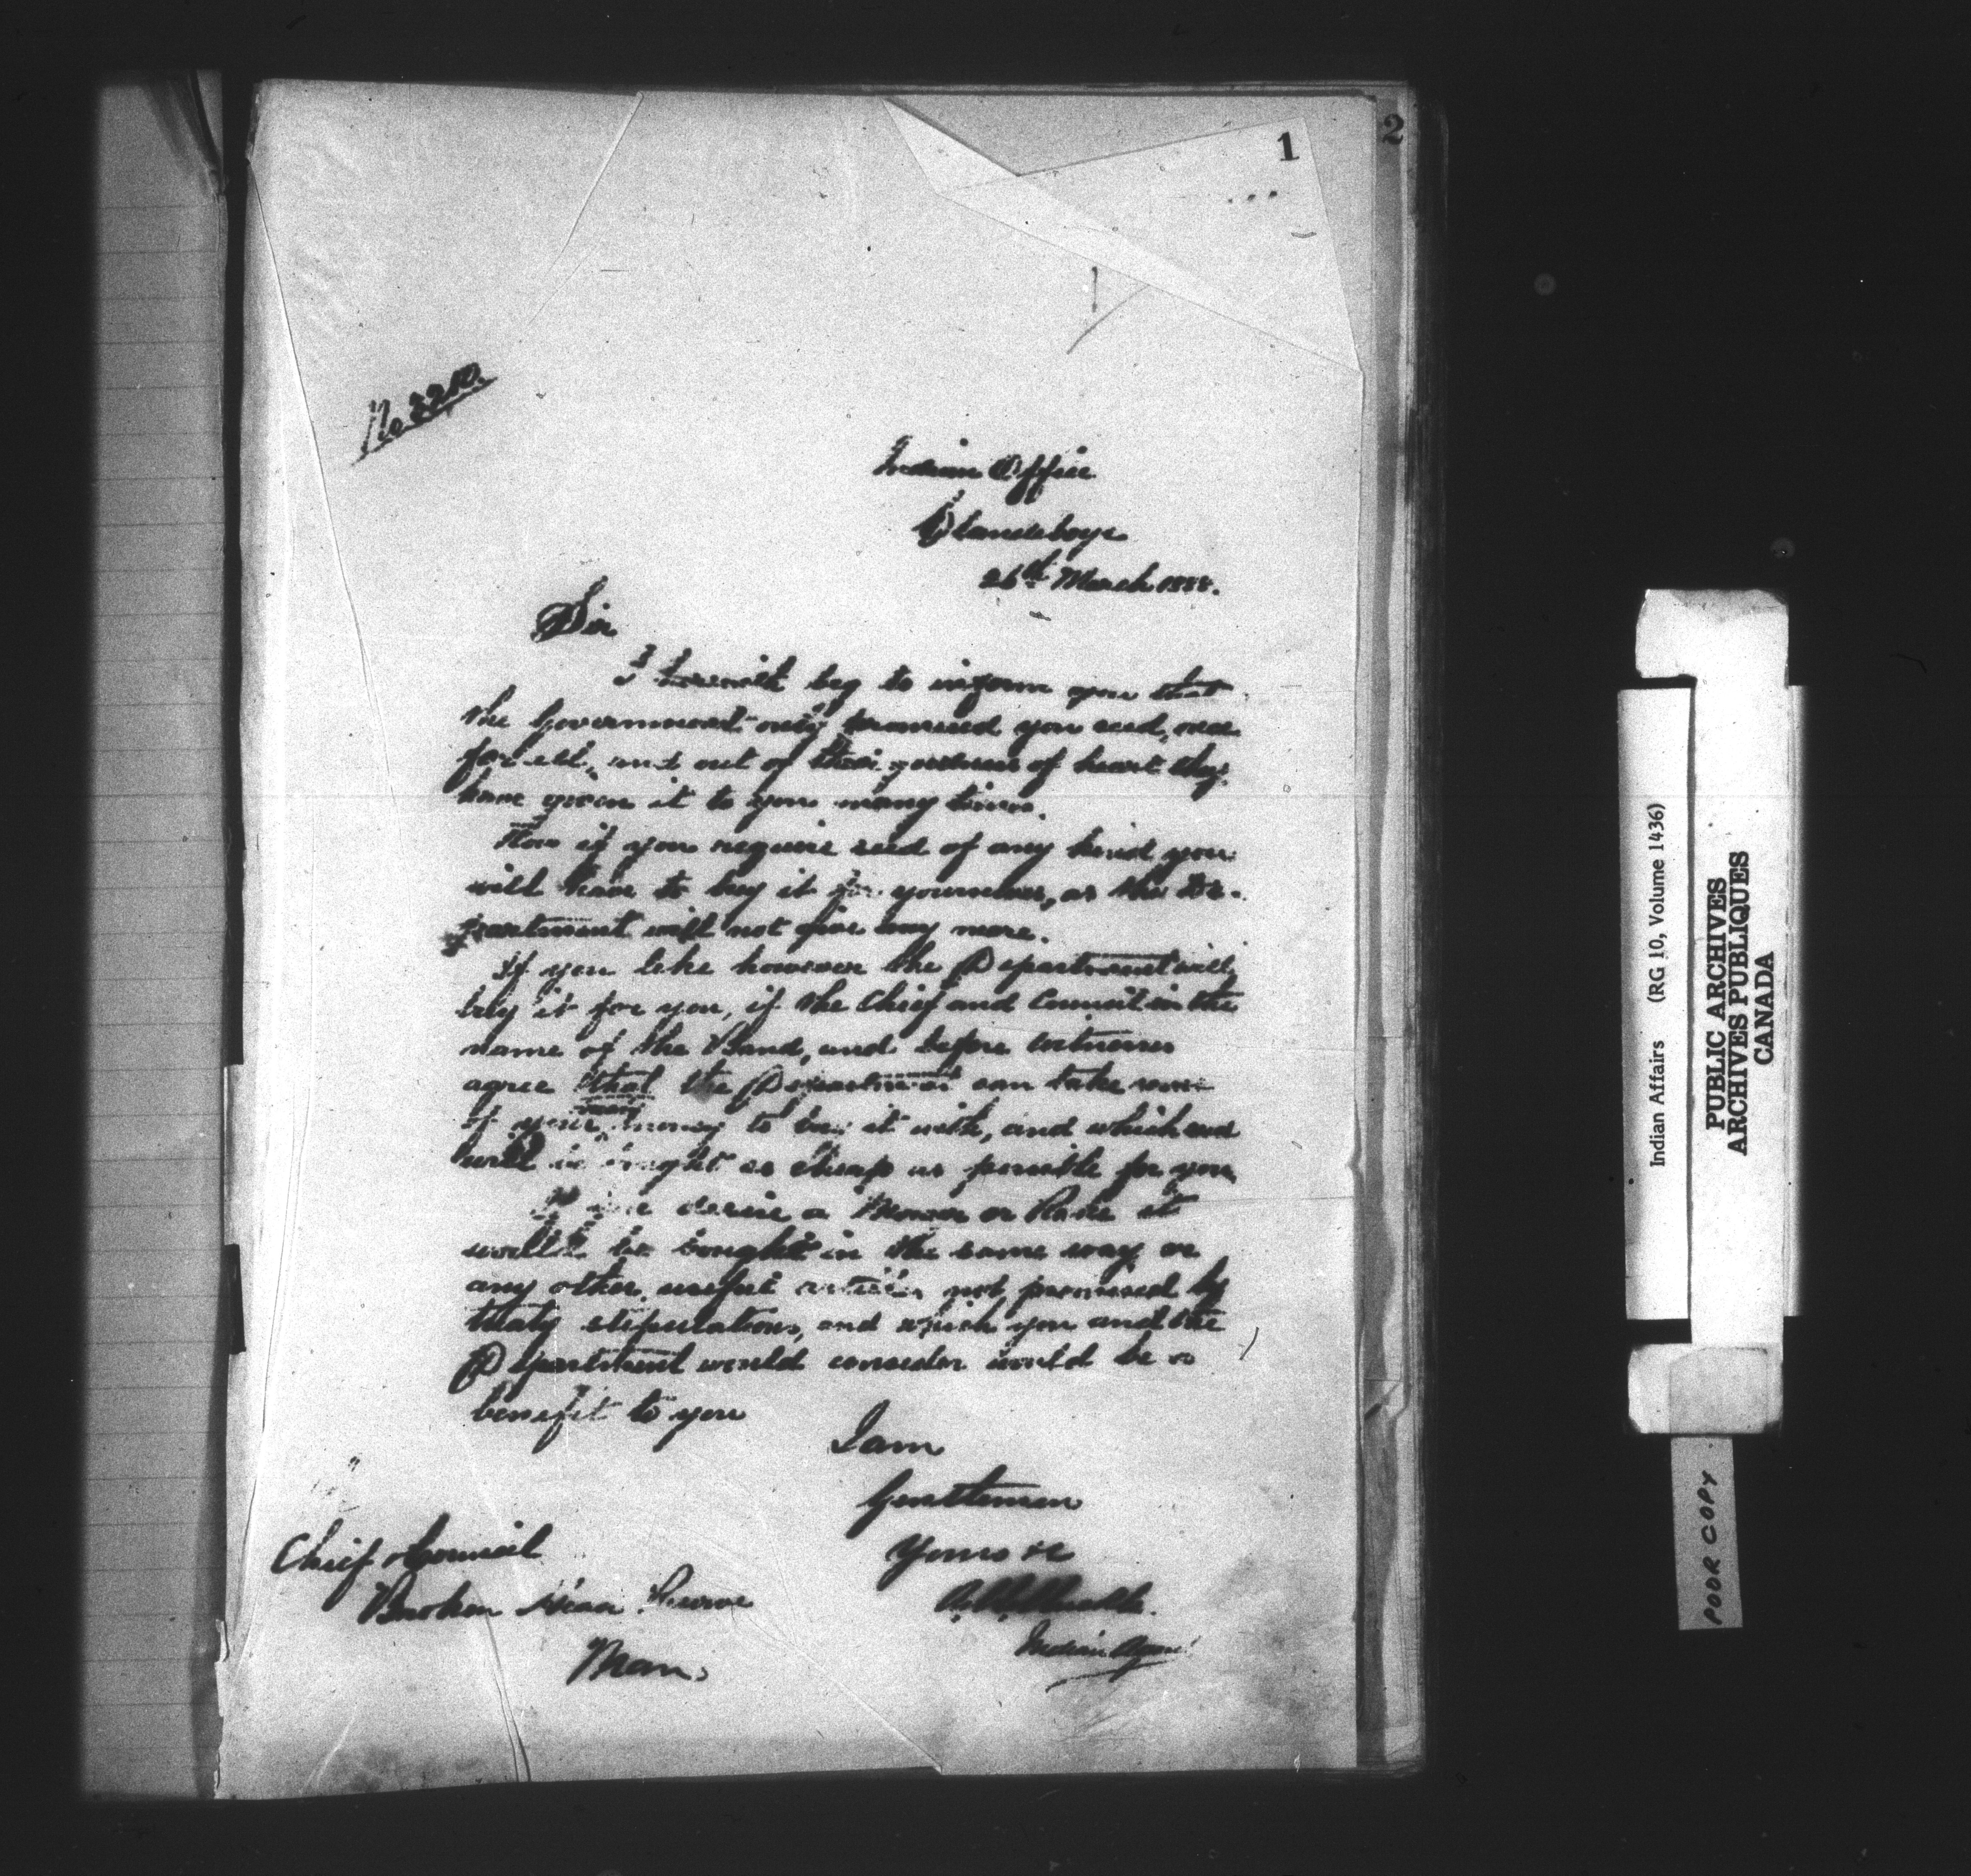 1
2
No
Indian Office
Clandeboye
26th March 1888.
Sir
I herewith beg to inform you that
the Government only promised you seed, once
for all, and out of their goodness of heart they
have given it to you many times.
Now if you require seed of any kind you
will have to buy it for yourselves, as the De-
partment will not give any more.
If you like however the Department will
buy it for you, if the Chief and Council in the
name of the Band, and before witnesses
agree that the Department can take some
of your money to buy it with, and which seed
will be bought as cheap as possible for you
If you desire a Mower or Rake it
would be bought in the same way or
any other useful articles not promised by
treaty stipulations, and which you and the
Department would consider would be a
benefit to you
I am
Gentlemen
Yours &c
Indian Agent
Chief & Council
Broken Head Reserve
Man.
Indian Affairs (RG 10, Volume 1436)
PUBLIC ARCHIVES
ARCHIVES PUBLIQUES
CANADA
POOR COPY